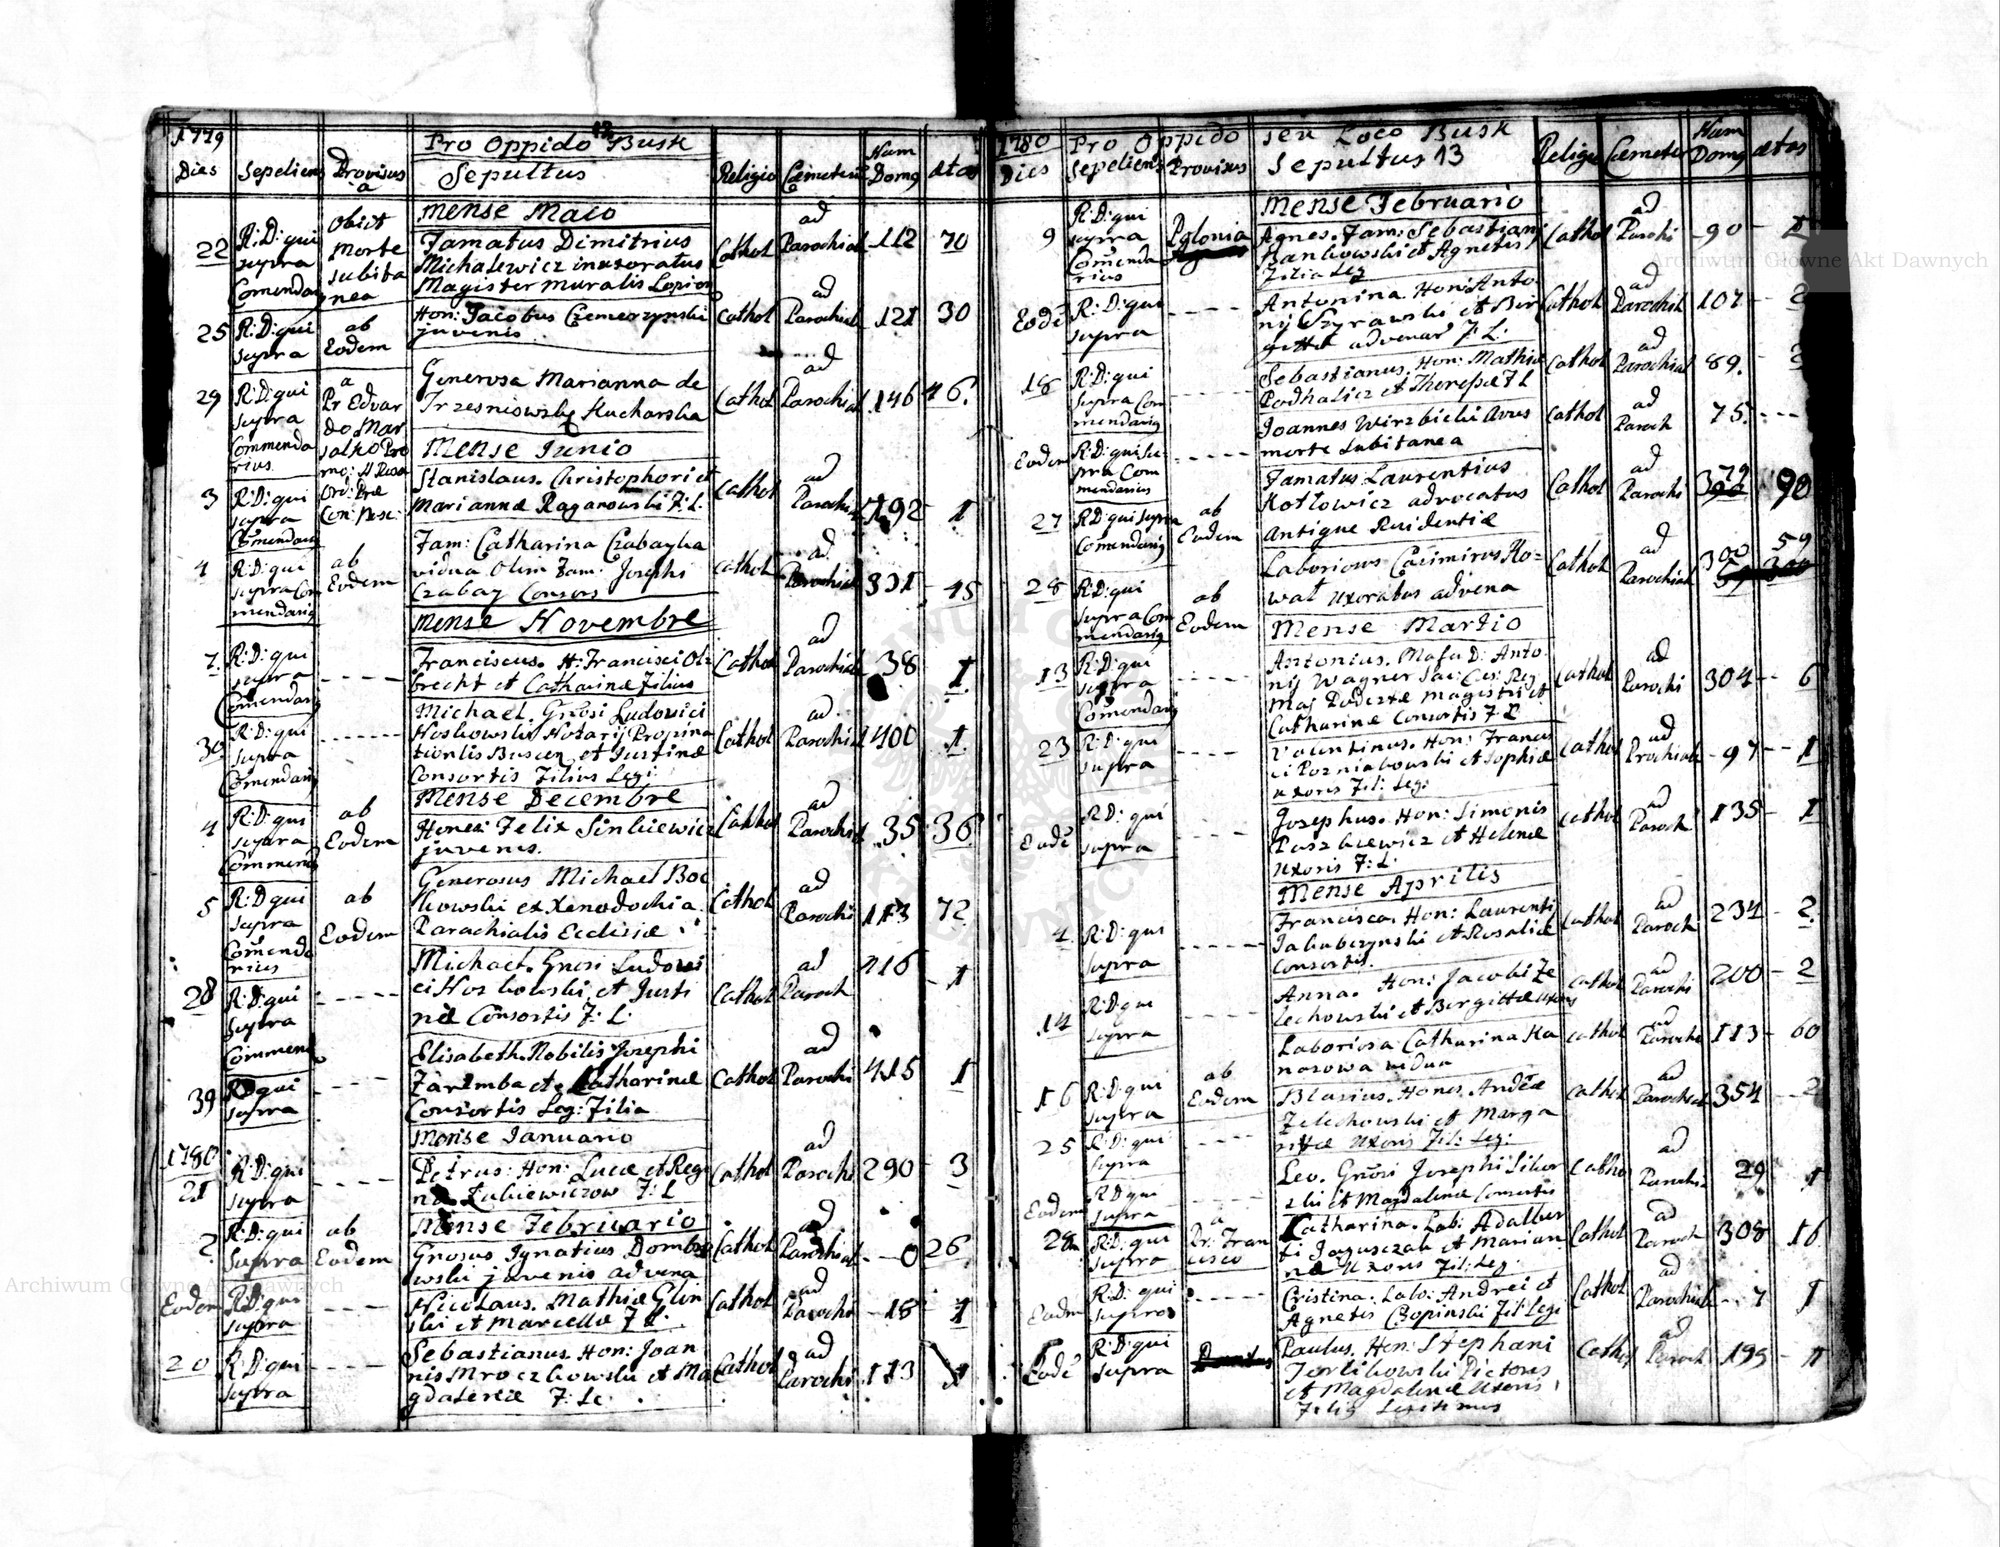 1779
Pro Oppido Busk
Dies Sepeliens Provisus a Sepultus Religio Cæmeteriu Num Domq ætas
Mense Maio
22 R:D:qui supra Comendariq
Obiit morte subitanea
Famatus Dimitrius
Michalewicz inuxoratus
Magister muralis
Cathol ad Parochial 112 70
25 R:D:qui supra
ab Eodem
Hon: Jacobus Czemerzynski
juvenis
Cathol ad Parochial 121 30
29 R:D:qui supra Commendarius
a Pr Edvardo
Generosa Marianna de
Kucharska
Cathol ad Parochial 146 46.
Mense Junio
3 R:D:qui supra Comendariq
Stanislaus. Christophori et
Mariannæ Raganowski F:L.
Cathol ad 192 1
4 R:D:qui supra Commendariq
ab Eodem
Fam: Catharina Czabayka
vidua Olim Fam: Josephi
Czabay Consors
Cathol ad Parochial 331 45
Mense Novembre
7. R:D:qui supra Comendariq
Franciscus. H: Francisci Ol
brecht et Catharinæ Filius
Cathol ad Parochial 38 1
30 R:D:qui supra Comendariq
Michael. Gnosi Ludovici
Hoskowski Notarij Propina
tionlis Buscen et Justinæ
Consortis Filius Legi:
Cathol ad Parochial 400 1.
Mense Decembre
4 R:D:qui supra Commend
ab Eodem
Felix Sinkiewicz
juvenis.
Cathol ad Parochial 35 36
5 R:D qui supra Comendarius
ab Eodem
Generosus Michael Boc
kowski ex Xenodochia
Parachialis Ecclesiæ
Cathol ad Parochi 113 72
28 R:D:qui supra Commend
Michael. Gnosi Ludovi
ci Hoskowski et Justi
næ Consortis F: L:
Cathol ad Paroch 416 1
39 R:D:qui supra
Elisabeth. Nobilis Josephi
Zaremba et Catharinæ
Consortis Leg: Filia
Cathol ad Parochi 415 1
Mense Januario
1780
21 R:D:qui supra
Petrus: Hon: Lucæ et Regi
næ Łukiewiczow F: L
Cathol ad Parochi 290 3
Mense Februario
2 R:D:qui supra
ab Eodem
Gnosus Ignatius Dombro
wski juvenis advena
Cathol ad Parochial 0 26
Eodem R:D:qui supra
Nicolaus. Mathiæ Glin
ski et Marcellæ F L.
Cathol ad Parochi 18 1
20 R:D:qui supra
Sebastianus. Hon: Joan
nis Mroczkowski et Ma
gdalenæ F: Le.
Cathol ad Parochi 113 1
1780 Pro Oppido seu Loco Busk
Dies Sepeliens Provisus Sepultus 13 Religio Cæmeter Num Domq ætas
Mense Februario
9 R:D:qui supra Comendarius
Agnes. Fam: Sebastiani
Hankowski et Agnetis
Filia Leg
Cathol ad Parochi 90 1
Eodē R:D:qui supra
Antonina. Hon: Anto
nij et Bri
gittæ advenar F: L:
Cathol ad Parochial 107 2
18 R:D:qui supra Commendariq
Sebastianus. Hon: Mathiæ
Podhalicz et Theresæ F L
Cathol ad Parochial 89.
Eodem R:D:qui supra Commendarius
Joannes Wirzbicki
morte subitanea
Cathol ad Paroch 75.
27 R:D:qui supra Comendariq
ab Eodem
Famatus Laurentius
Kotlowicz advocatus
Antique Residentiæ
Cathol ad Parochi 379 90
28 R:D:qui supra Commendariq
ab Eodem
Laboriosus Casimirus Ko=
wal uxoratus advena
Cathol ad Parochial 300 59
Mense Martio
13 R:D:qui supra Comendariq
Antonius. D: Anto
nij Wagner Sac: Cæs: Reg
Magistri et
Catharinæ Consortis F L
Cathol ad Parochi 304 6
23 R:D:qui supra
Valentinus. Hon: Francis
ci Pozniakowski et Sophiæ
uxoris Fil: Leg:
Cathol ad Prochial 97 1
Eodē R:D:qui supra
Josephus. Hon: Simonis
Paszkiewicz et Helenæ
uxoris F: L:
Cathol ad Paroch 135 1
Mense Aprilis
4 R:D:qui supra
Francisca. Hon: Laurenti
Jakubczynski et Rosaliæ
Consortis.
Cathol ad Paroch 234 2.
14 R:D:qui supra
Anna. Hon: Jacobi Ze
lechowski et Brigittæ uxoris
Cathol ad Parochi 200 2
16 R:D:qui supra
ab Eodem
Laboriosa Catharina Ka
narowa vidua
Cathol ad Parochi 113 60
25 R:D:qui supra
Blasius. Hones. Andreæ
Zelechowski et Marga
rittæ uxoris Fil: Leg:
Cathol ad Parochial 354 2
Eodem R:D:qui supra
Leo. Gnosi Josephi Sikor
ski et Magdalenæ Consortis
Cathol ad Parochi 29 1
28 R:D:qui supra
a Pr: Francisco
Catharina. Lab: Adalber
ti Jaguszczak et Marian
næ uxoris Fil: Leg.
Cathol ad Paroch 308 16
Eodem R:D:qui supra
Cristina. Labo: Andrei et
Agnetis Czopinski Fil: Legi
Cathol ad Parochial 7 1
Eodē R:D:qui supra
Paulus. Hon: Stephani
Terlikowski Pictoris
et Magdalenæ Uxoris
Filiq Legitimus
Cathol ad Paroch 195 1
Archiwum Główne Akt Dawnych
Archiwum Główne Akt Dawnych